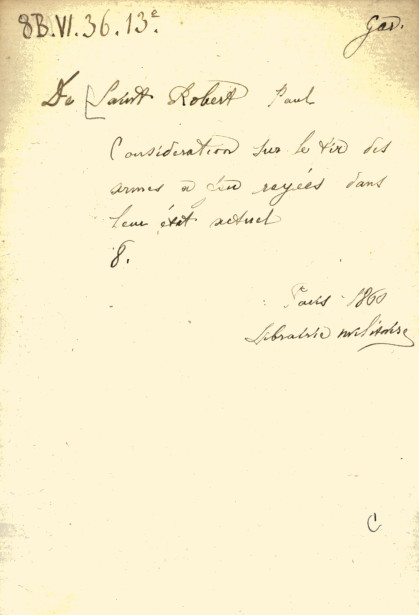 8B.VI.36.13.e
Gav.
De [Saint Robert Paul
Consideration sur le tir des
armes a feu rayées dans
leur état actuel
8.
Paris 1860
Librairie militaire
C